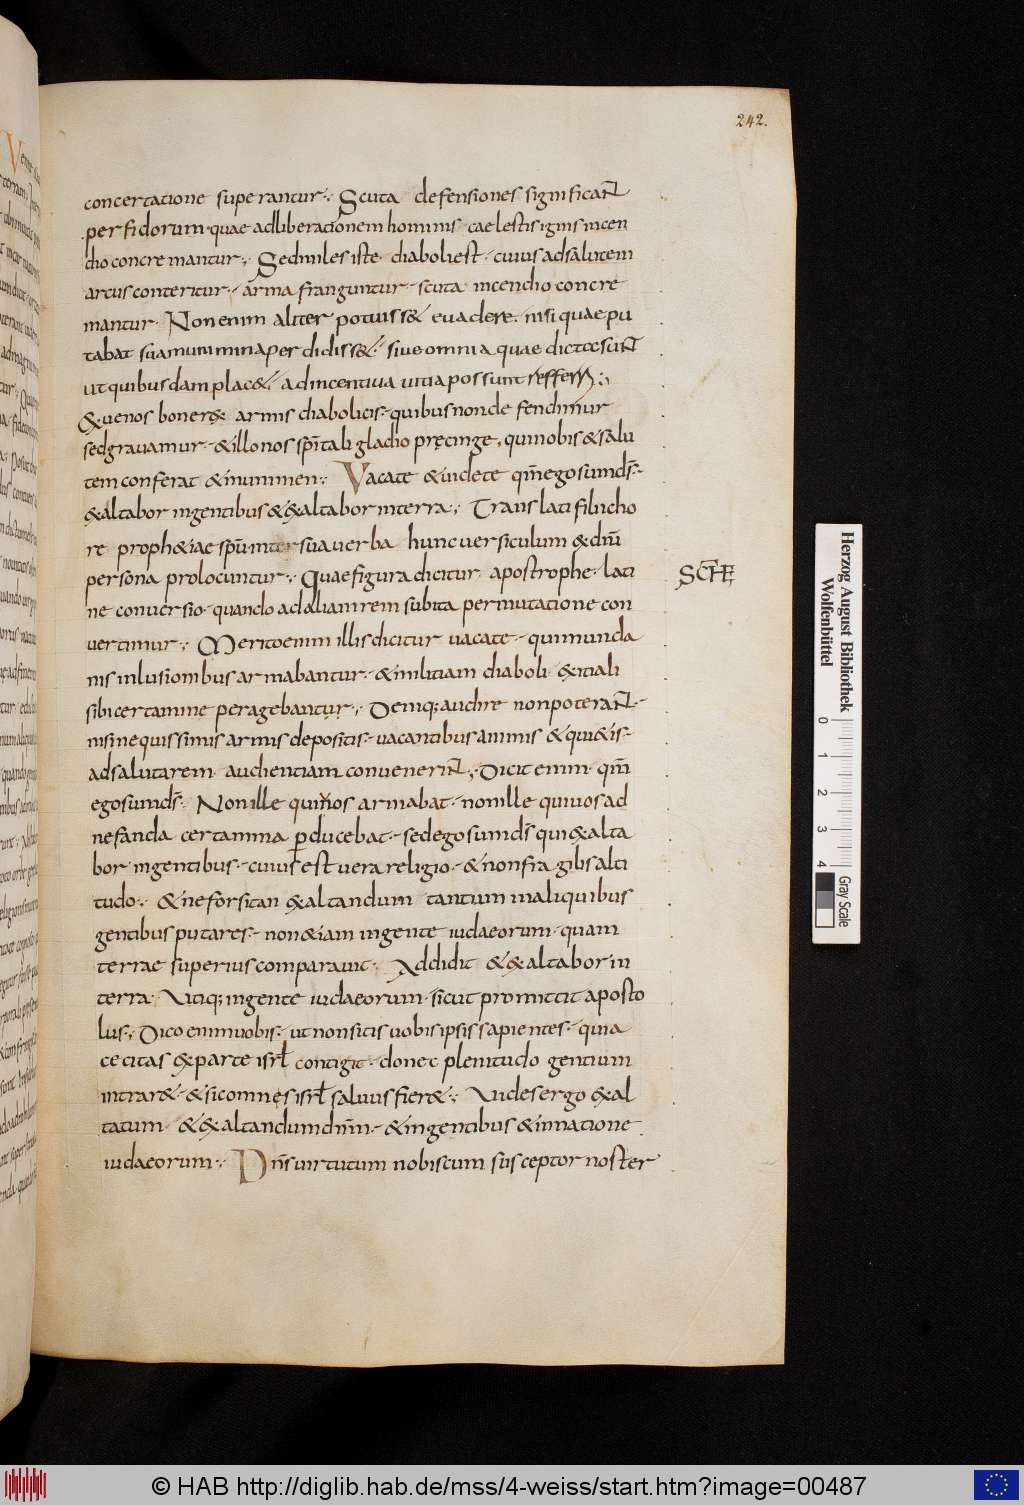 242.
concertatione superantur·, Scuta defensiones significaNT
perfidorum· quae adliberationem hominis· caelestis ignis incen
dio concremantur·, Sed miles iste diaboli est· cuius ad salutem
arcus conteritur· arma franguntur· scuta incendio concre
mantur· Non enim aliter potuiss& euadere· nisi quae pu
tabat sua munimina perdidiss&· siue omnia quae dicta suNT
ut quibusdam plac&· ad incentiua uitia possunt referri·,
& ue nos honerat& armis diabolicis· quibus non defendimur
sed grauamur· & illo nos sp̄itali gladio pręcinge, qui nobis & salu
tem conferat & inummen·, Vacate & uidete qm̄ ego sum dš·
&altabor in gentibus & &altabor in terra·, Translati filii cho
re proph&iae sp̄u inter sua uerba hunc uersiculum ex dn̄i
persona prolocuntur·, Quae figura dicitur apostrophe· lati
SCHE
ne conuersio· quando ad aliam rem subita permutatione con
uertimur·, Merito enim illis dicitur uacate· qui munda
nis inlusionibus armabantur· & militiam diaboli exitiali
sibi certamine peragebantur·, Deniq; audire non poteraNT·
nisi nequissimis armis depositis· uacantibus animis & qui&is·
ad salutarem audientiam conuenerINT·, Dicit enim qm̄
ego sum dš· Non ille qui nos armabat· non ille qui uos ad
nefanda certamina perducebat· sed ego sum dš qui &alta
bor in gentibus· cuius est uera religio· & non fragibs alti
tudo·, & ne forsitan &altandum tantum in aliquibus
gentibus putares· non &iam in gente iudaeorum· quam
terrae superius comparauit·, Addidit & &altabor in
terra· Utiq; in gente iudaeorum· sicut promittit aposto
lus·, Dico enim uobis· ut non sitis uobis ipsis sapientes· quia
cecitas &parte isrł contigit· donec plenitudo gentium
intrar&· & sic omnes isrł saluus fier&·, Uides ergo &al
tatum· & &altandum dn̄m· & in gentibus & in natione
iudaeorum·, Dn̄s uirtutum nobiscum susceptor noster
Herzog August Bibliothek
Wolfenbüttel
0 1 2 3 4
Gray Scale
© HAB http://diglib.hab.de/mss/4-weiss/start.htm?image=00487